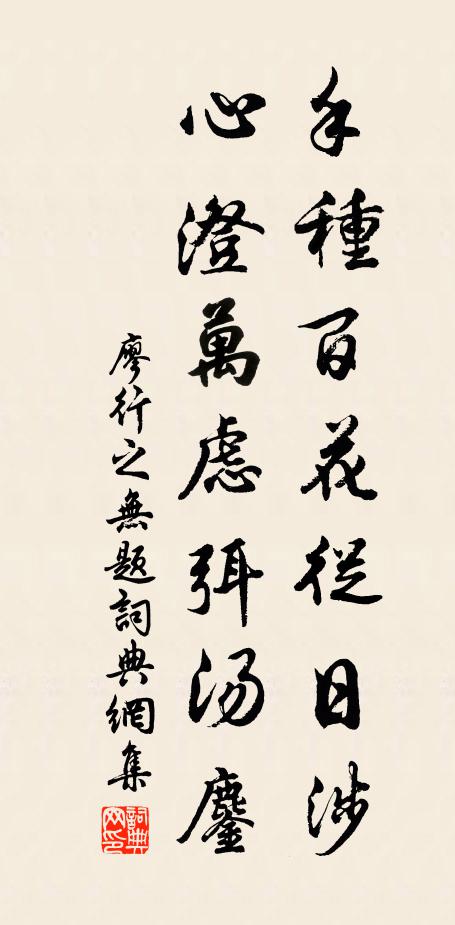 手種百花從日涉
心澄萬慮弭汤鏖
廖行之無题詞典網集
詞典网印